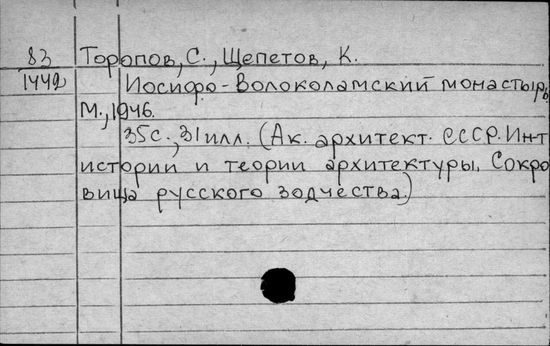 83 Торопов, С., Щепетов, К.
1442 Иосифо-Волоколамский монастырь
М., 1946.
35с., 31 илл. (Ак. архитект. СССР. Ин-т
истории и теории архитектуры. Сокро
вища русского зодчества.)